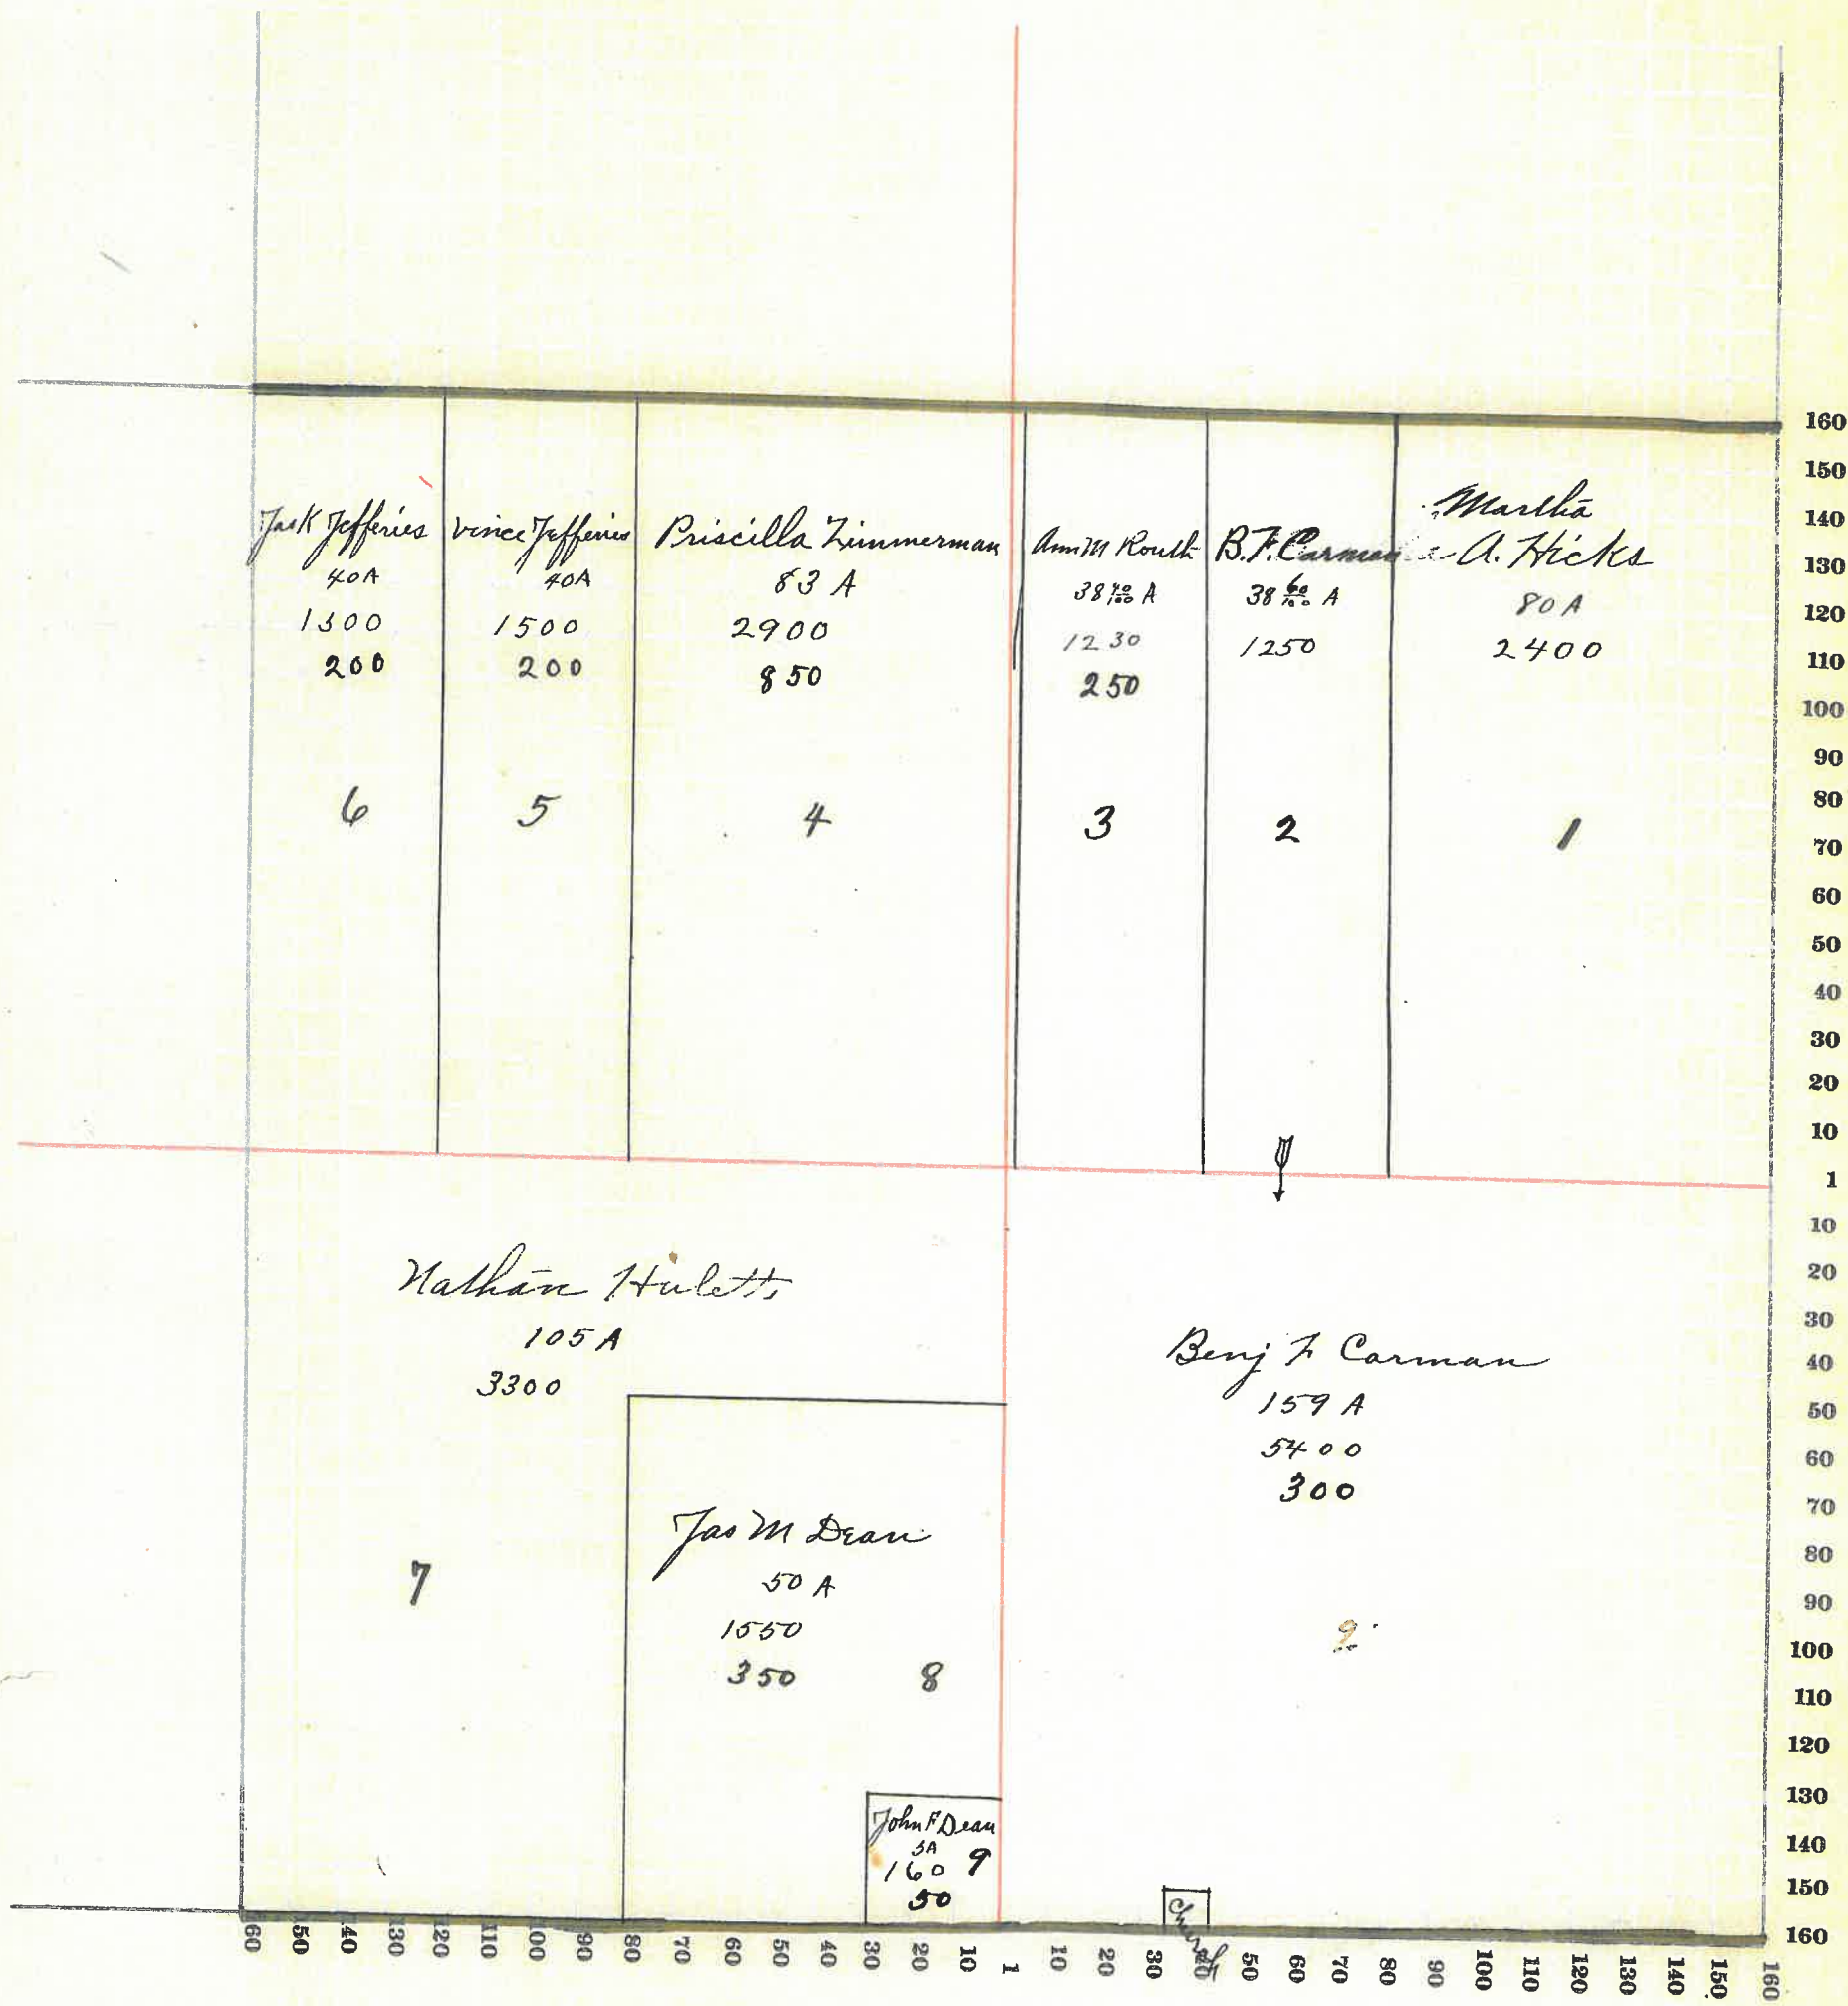 Jack Jefferies
40A
1500
200
6
Vince Jefferies
40A
1500
200
5
Priscilla Zimmerman
83 A
2900
850
4
Ann M Routh
38 40/100 A
1230
250
3
B.F. Carman
38 60/100 A
1250
2
Martha
A. Hicks
80 A
2400
1
Nathan Huletts
105 A
3300
7
Jas M Dean
50 A
1550
350
8
John F Dean
5A
160
9
50
Benj F Carman
159 A
5400
300
9
Church
160
150
140
130
120
110
100
90
80
70
60
50
40
30
20
10
1
10
20
30
40
50
60
70
80
90
100
110
120
130
140
150
160
60 50 40 30 20 10 00 90 80 70 60 50 40 30 20 10 1 10 20 30 40 50 60 70 80 90 100 110 120 130 140 150 160